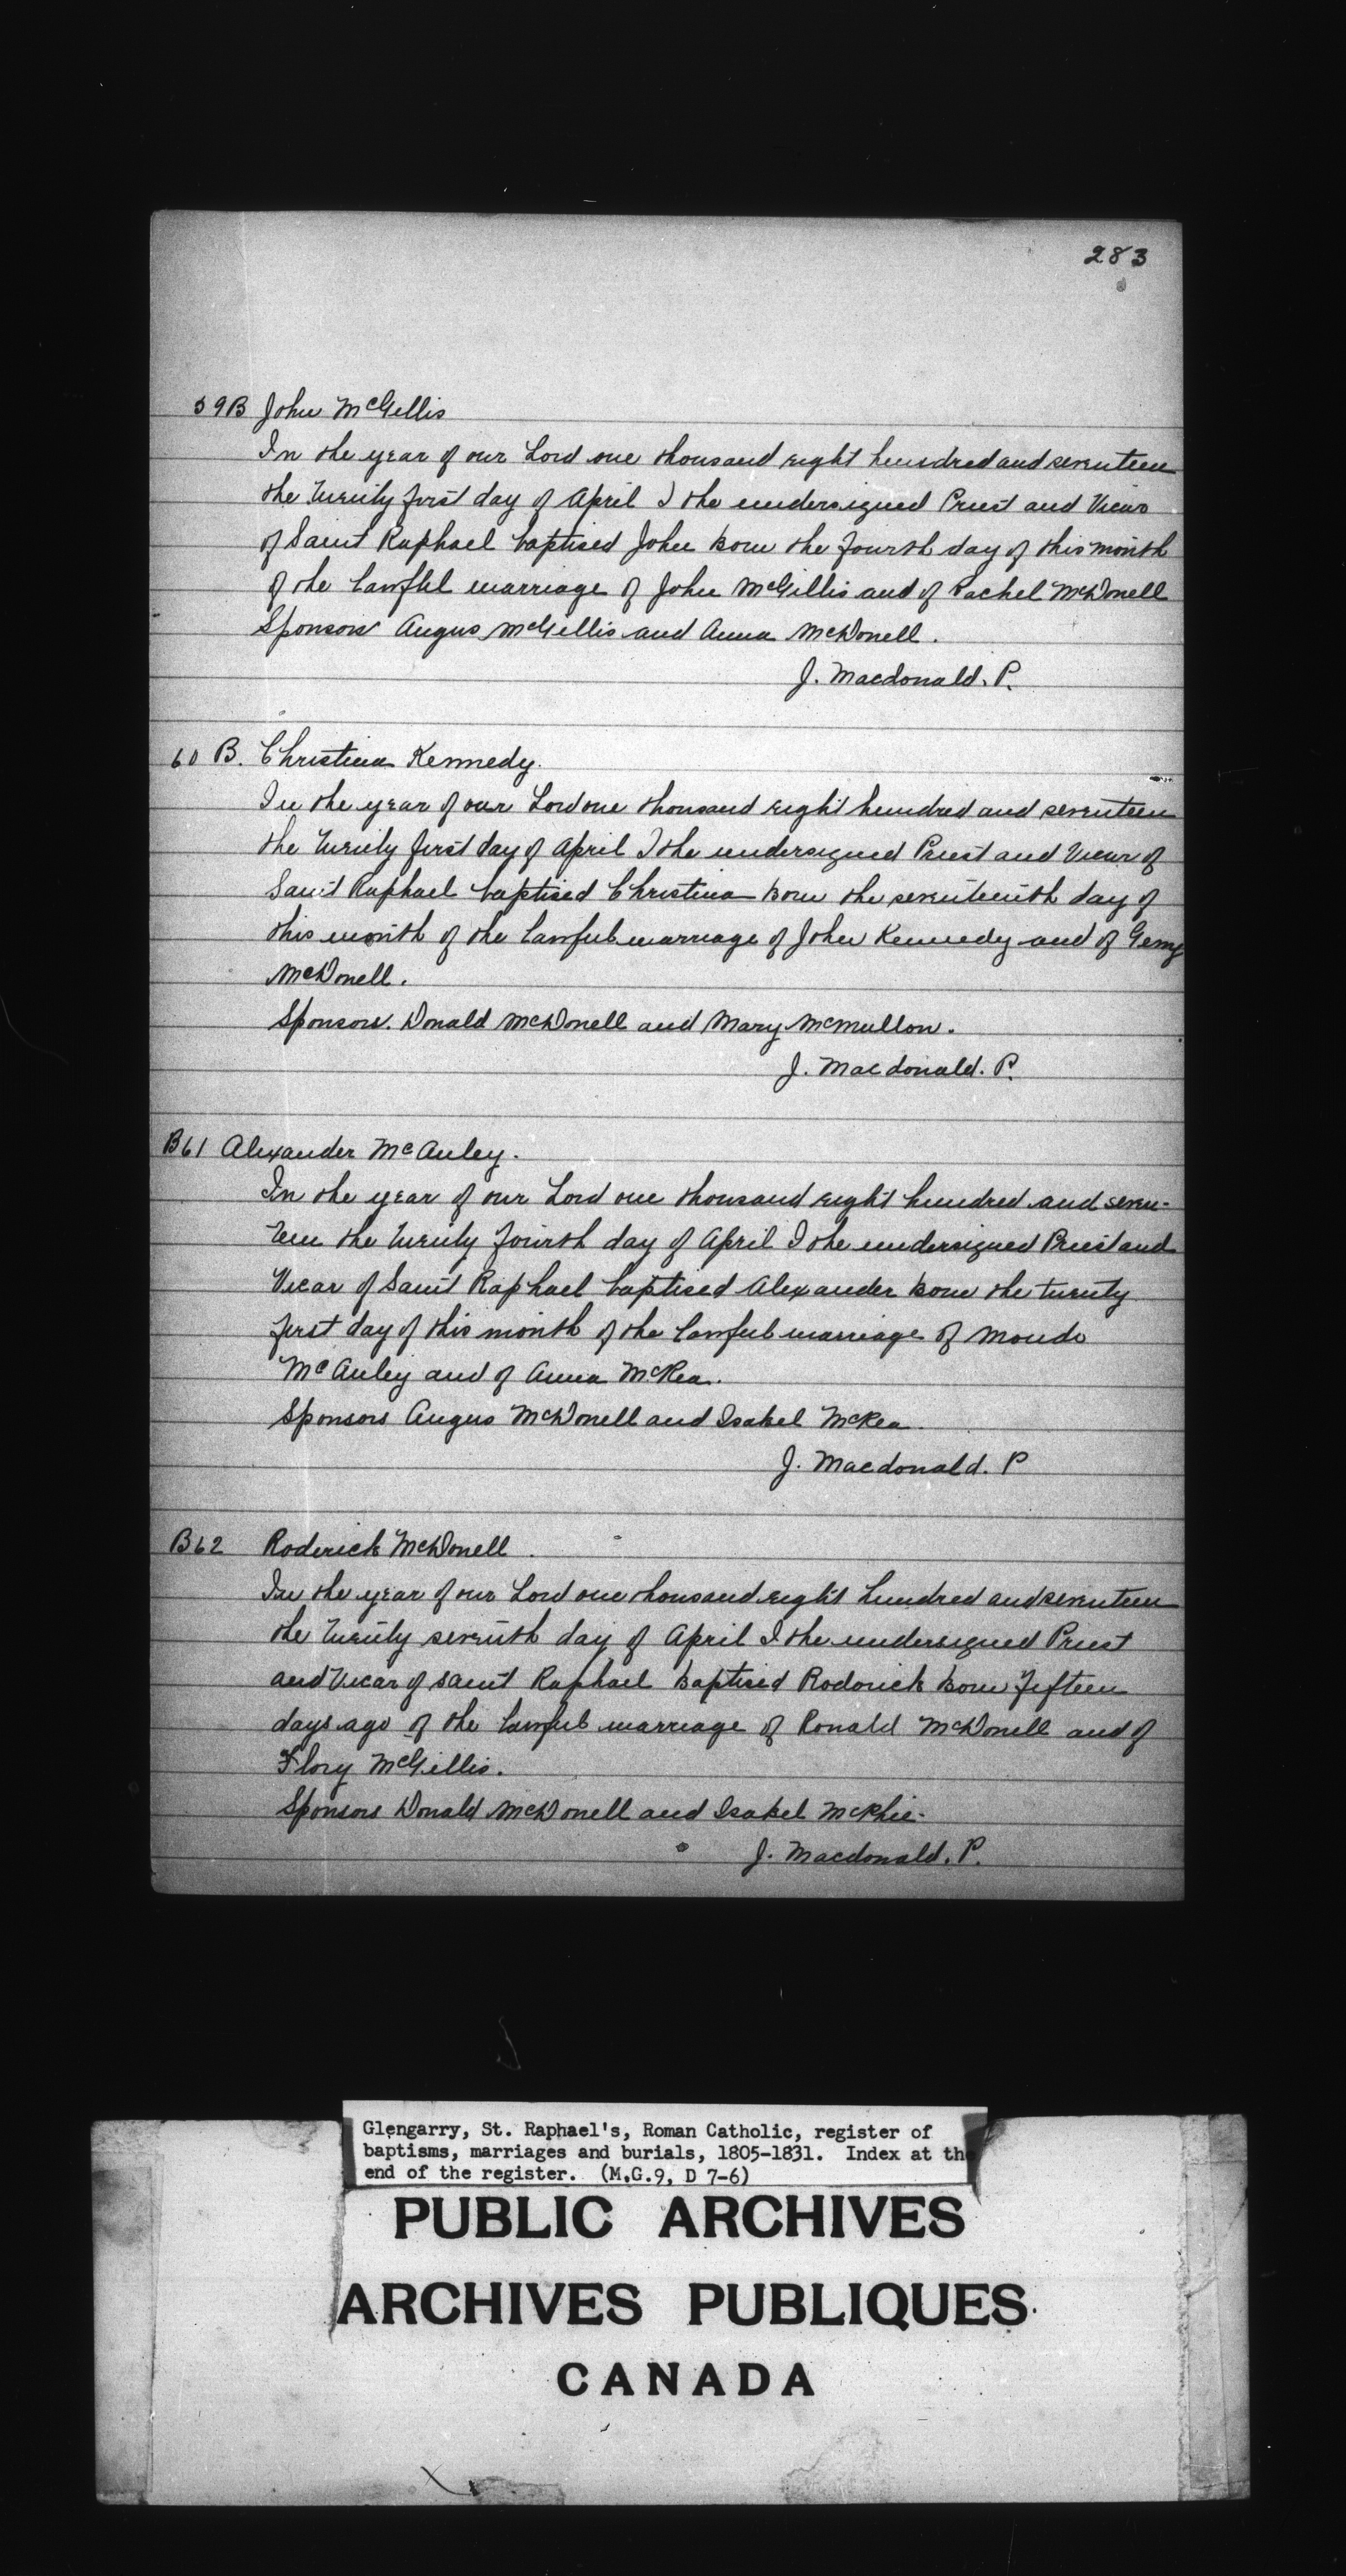 283
59B John McGillis
In the year of our Lord one thousand eight hundred and seventeen
the twenty first day of April I the undersigned Priest and Vicar
of Saint Raphael baptised John born the fourth day of this month
of the lawful marriage of John McGillis and of Rachel McDonell
Sponsors Angus McGillis and Anna McDonell.
J. Macdonald. P.
60 B. Christina Kennedy.
In the year of our Lord one thousand eight hundred and seventeen
the twenty first day of April I the undersigned Priest and Vicar of
Saint Raphael baptised Christina born the seventeenth day of
this month of the lawful marriage of John Kennedy and of
McDonell.
Sponsors. Donald McDonell and Mary McMullon.
J. Macdonald. P.
B61 Alexander McAuley.
In the year of our Lord one thousand eight hundred and seven-
teen the twenty fourth day of April I the undersigned Priest and
Vicar of Saint Raphael baptised Alexander born the twenty
first day of this month of the lawful marriage of
McAuley and of Anna McRea.
Sponsors Angus McDonell and Isabel McRea.
J. Macdonald. P
B62 Roderick McDonell.
In the year of our Lord one thousand eight hundred and seventeen
the twenty seventh day of April I the undersigned Priest
and Vicar of Saint Raphael Baptised Roderick born fifteen
days ago of the lawful marriage of Ronald McDonell and of
Flory McGillis.
Sponsors Donald McDonell and Isabel McPhie.
J. Macdonald. P.
Glengarry, St. Raphael's, Roman Catholic, register of
baptisms, marriages and burials, 1805-1831. Index at the
end of the register. (M.G.9, D 7-6)
PUBLIC ARCHIVES
ARCHIVES PUBLIQUES
CANADA